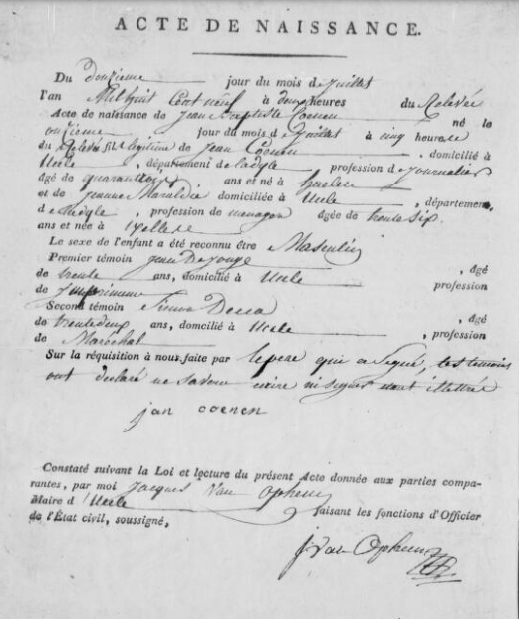 ACTE DE NAISSANCE.
Du douzieme jour du mois de juillet
l'an Mil huit Cent neuf à deux heures du Relevée
Acte de naissance de Jean Baptiste Coenen né le
onzieme jour du mois d juillet à cinq heures de
du Relevée fils légitime de Jean Coenen, domicilié à
Uccle, département de la dyle profession de journalier
âgé de quarante ans et né à
et de Jeanne domiciliée à Uccle, département
de la dyle, profession de menagere âgée de trente six
ans et née à
Le sexe de l'enfant a été reconnu être Masculin
Premier témoin Jean De jonge, âgé
de trente ans, domicilié à Uccle profession
de Imprimeur
Second témoin Decca, âgé
de trente deux ans, domicilié à Uccle, profession
de Maréchal
Sur la réquisition à nous faite par le pere qui a signé, les temoins
ont declaré ne savoir ecrire ni signer illettrés
jan coenen
Constaté suivant la Loi et lecture du présent Acte donnée aux parties compa-
rantes, par moi Jacques Van Ophem
Maire d'Uccle faisant les fonctions d'Officier
de l'État civil, soussigné,
J Van Ophem